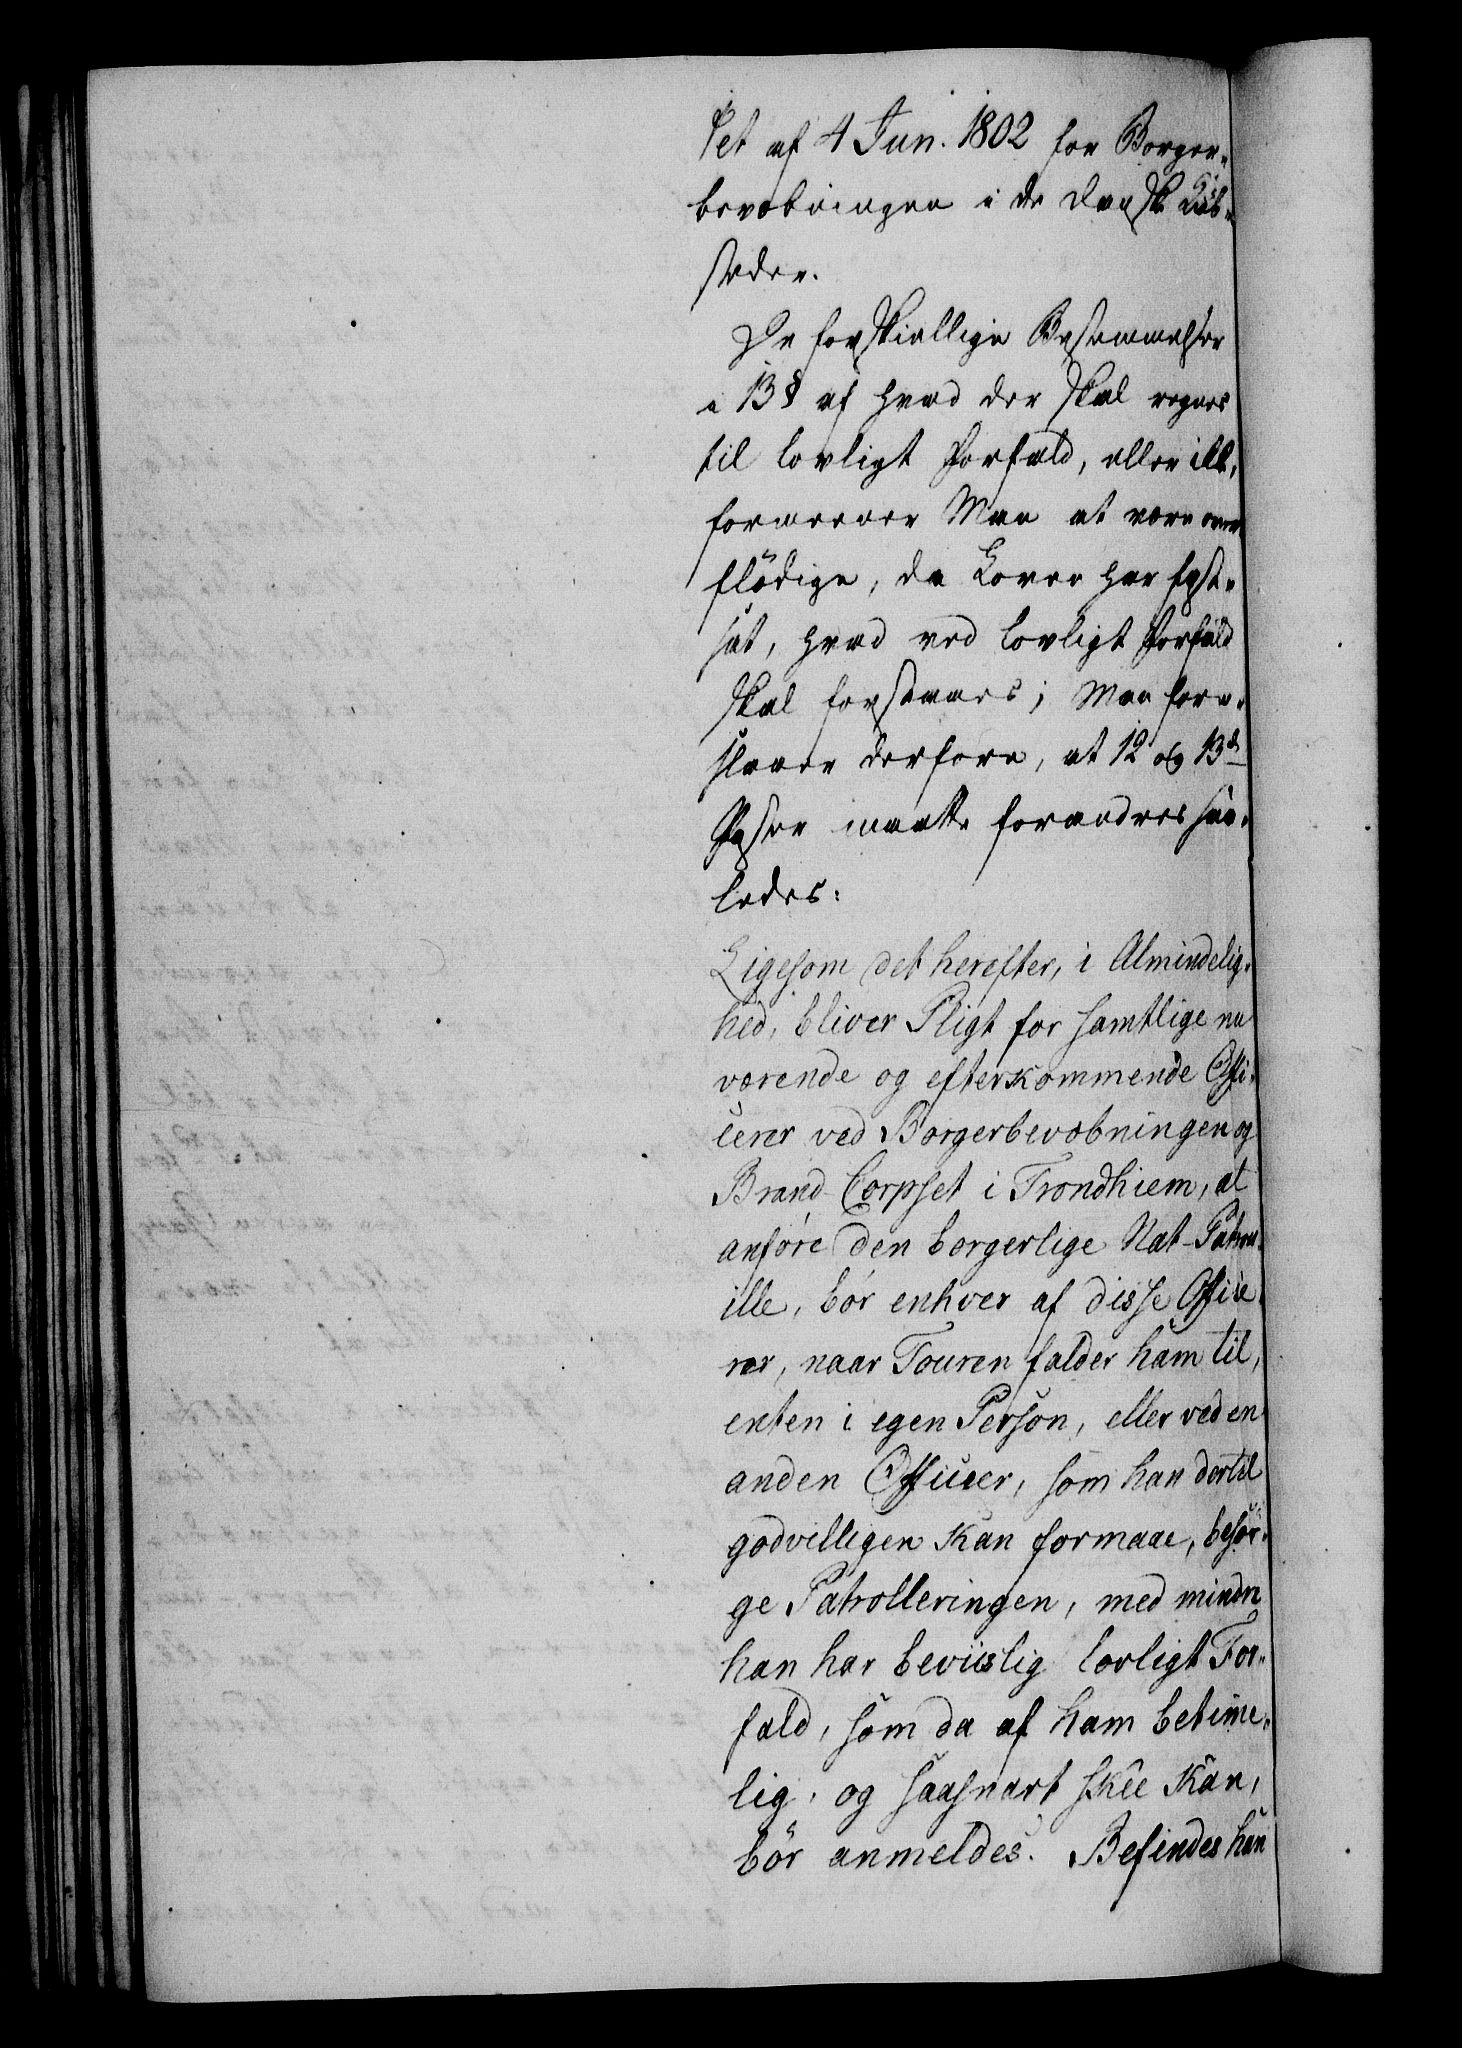 tet af 4 Jun. 1802 for Borger-
bevæbningen i de danske Kiöb-
stæder.
De forskiellige Bestemmelser
i 13 § af hvad der skal regnes
til lovligt Forfald, eller ikke,
formeener Man at være over
flödige, da Loven har fast-
sat, hvad ved lovligt Forfald
skal forstaaes; Man fore-
slaaer derfore, at 12 og 13de
Poster maatte forandres saa-
ledes:
Ligesom det herefter, i Almindelig-
hed, bliver Pligt for samtlige nu
værende og efterkommende Offi-
cerer ved Borgerbevæbningen og
Brand-Corpset i Trondhiem, at
anföre den borgerlige Nat-Patrou-
ille, bör enhver af disse Officie-
rer, naar Touren falder ham til,
enten i egen Person, eller ved en
anden Officeer, som han dertil
godvilligen kan formaae, besör-
ge Patrolleringen, med mindre
han har beviislig lovligt For-
fald, som da af ham betime-
lig, og saasnart skee kan,
bör anmeldes. Befindes han